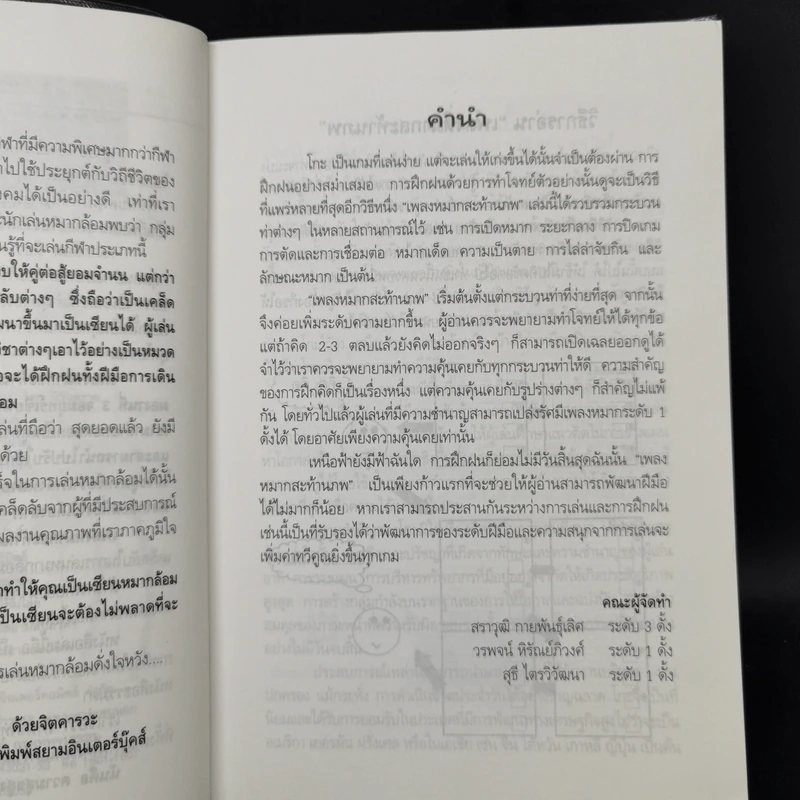 ฬาที่มีความพิเศษมากกว่ากีฬา
าไปใช้ประยุกต์กับวิถีชีวิตของ
งคมได้เป็นอย่างดี เท่าที่เรา
ะนักเล่นหมากล้อมพบว่า กลุ่ม
นรู้ที่จะเล่นกีฬาประเภทนี้
บให้คู่ต่อสู้ยอมจำนน แต่กว่า
ลับต่างๆ ซึ่งถือว่าเป็นเคล็ด
ฒนาขึ้นมาเป็นเซียนได้ ผู้เล่น
วิชาต่างๆเอาไว้อย่างเป็นหมวด
อจะได้ฝึกฝนทั้งฝีมือการเดิน
อม
ล่นที่ถือว่า สุดยอดแล้ว ยังมี
ด้วย
ร็จในการเล่นหมากล้อมได้นั้น
คล็ดลับจากผู้ที่มีประสบการณ์
ผลงานคุณภาพที่เราภาคภูมิใจ
ทำให้คุณเป็นเซียนหมากล้อม
เป็นเซียนจะต้องไม่พลาดที่จะ
ารเล่นหมากล้อมดั่งใจหวัง....
ด้วยจิตคารวะ
พิมพ์สยามอินเตอร์บุ๊คส์
คำนำ
โกะ เป็นเกมที่เล่นง่าย แต่จะเล่นให้เก่งขึ้นได้นั้นจำเป็นต้องผ่าน การ
ฝึกฝนอย่างสม่ำเสมอ การฝึกฝนด้วยการทำโจทย์ตัวอย่างนั้นดูจะเป็นวิธี
ที่แพร่หลายที่สุดอีกวิธีหนึ่ง “เพลงหมากสะท้านภพ” เล่มนี้ได้รวบรวมกระบวน
ท่าต่างๆ ในหลายสถานการณ์ไว้ เช่น การเปิดหมาก ระยะกลาง การปิดเกม
การตัดและการเชื่อมต่อ หมากเด็ด ความเป็นตาย การไล่ล่าจับกิน และ
ลักษณะหมาก เป็นต้น
“เพลงหมากสะท้านภพ” เริ่มต้นตั้งแต่กระบวนท่าที่ง่ายที่สุด จากนั้น
จึงค่อยเพิ่มระดับความยากขึ้น ผู้อ่านควรจะพยายามทำโจทย์ให้ได้ทุกข้อ
แต่ถ้าคิด 2-3 ตลบแล้วยังคิดไม่ออกจริงๆ ก็สามารถเปิดเฉลยออกดูได้
จำไว้ว่าเราควรจะพยายามทำความคุ้นเคยกับทุกกระบวนท่าให้ดี ความสำคัญ
ของการฝึกคิดก็เป็นเรื่องหนึ่ง แต่ความคุ้นเคยกับรูปร่างต่างๆ ก็สำคัญไม่แพ้
กัน โดยทั่วไปแล้วผู้เล่นที่มีความชำนาญสามารถเปล่งรัศมีเพลงหมากระดับ 1
ดั้งได้ โดยอาศัยเพียงความคุ้นเคยเท่านั้น
เหนือฟ้ายังมีฟ้าฉันใด การฝึกฝนก็ย่อมไม่มีวันสิ้นสุดฉันนั้น “เพลง
หมากสะท้านภพ” เป็นเพียงก้าวแรกที่จะช่วยให้ผู้อ่านสามารถพัฒนาฝีมือ
ได้ไม่มากก็น้อย หากเราสามารถประสานกันระหว่างการเล่นและการฝึกฝน
เช่นนี้เป็นที่รับรองได้ว่าพัฒนาการของระดับฝีมือและความสนุกจากการเล่นจะ
เพิ่มค่าทวีคูณยิ่งขึ้นทุกเกม
คณะผู้จัดทำ
สราวุฒิ กายพันธุ์เลิศ ระดับ 3 ดั้ง
วรพจน์ หิรัณย์ภิวงศ์ ระดับ 1 ดั้ง
สุธี ไตรวิวัฒนา ระดับ 1 ดั้ง